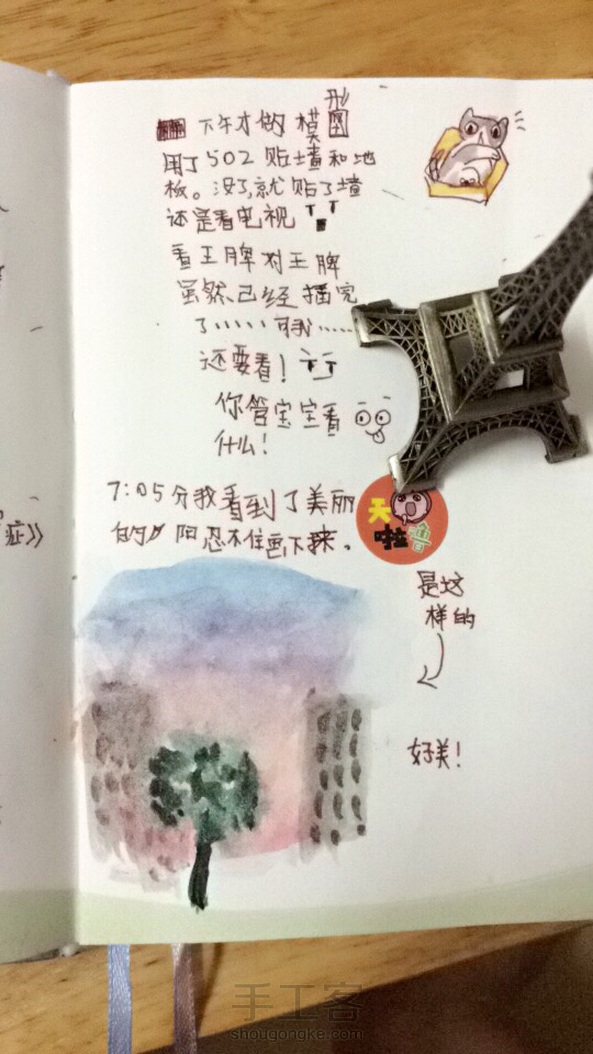 下午才做模型
用了502贴墙和地
板。没了,就贴了墙
还是看电视
看王牌对王牌
虽然已经播完
了······可我······
还要看!
你管宝宝看
什么!
7:05分我看到了美丽
的 阳忍不住画下来。
天
啦噜
是这
样的
好美!
症》
手工客
shougongke.com